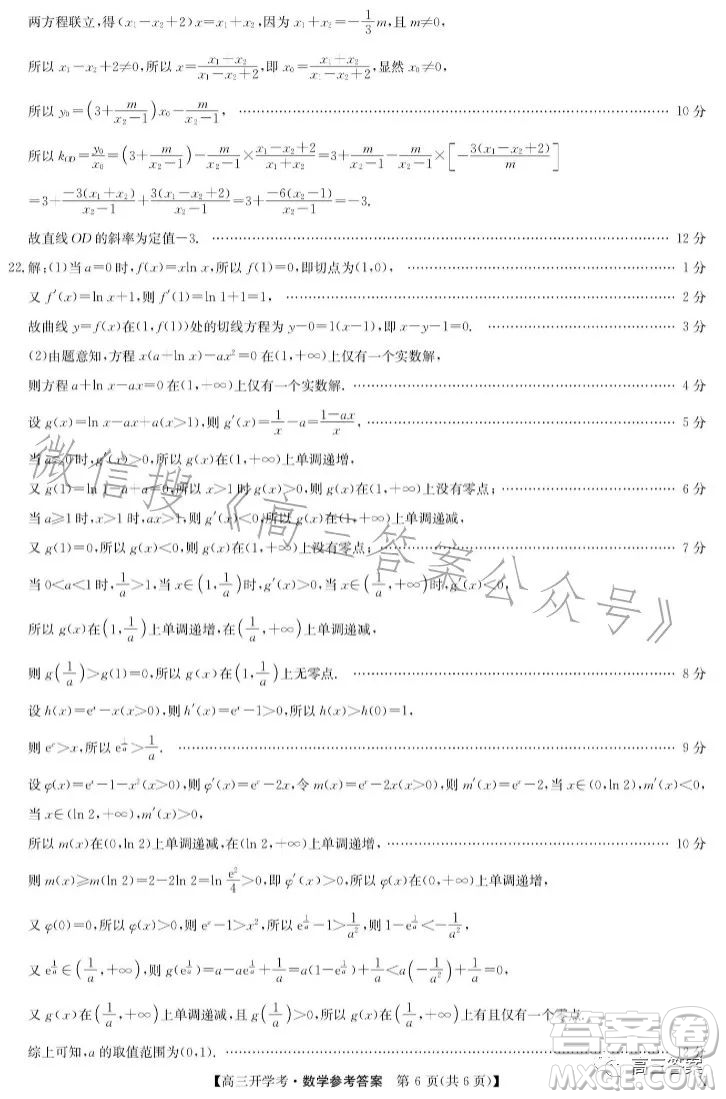 两方程联立,得(x₁-x₂+2)x=x₁+x₂,因为x₁+x₂=-\frac{1}{3}m,且m≠0,
所以x₁-x₂+2≠0,所以x=\frac{x₁+x₂}{x₁-x₂+2},即x₀=\frac{x₁+x₂}{x₁-x₂+2},显然x₀≠0,
所以y₀=(3+\frac{m}{x₂-1})x₀-\frac{m}{x₂-1}, 10分
所以k_{OD}=\frac{y₀}{x₀}=(3+\frac{m}{x₂-1})-\frac{m}{x₂-1}×\frac{x₁-x₂+2}{x₁+x₂}=3+\frac{m}{x₂-1}-\frac{m}{x₂-1}×[-\frac{3(x₁-x₂+2)}{m}]
=3+\frac{-3(x₁+x₂)}{x₂-1}+\frac{3(x₁-x₂+2)}{x₂-1}=3+\frac{-6(x₂-1)}{x₂-1}=-3.
故直线OD的斜率为定值-3. 12分
22.解:(1)当a=0时,f(x)=xln x,所以f(1)=0,即切点为(1,0), 1分
又f′(x)=ln x+1,则f′(1)=ln 1+1=1, 2分
故曲线y=f(x)在(1,f(1))处的切线方程为y-0=1(x-1),即x-y-1=0. 3分
(2)由题意知,方程x(a+ln x)-ax²=0在(1,+∞)上仅有一个实数解,
则方程a+ln x-ax=0在(1,+∞)上仅有一个实数解. 4分
设g(x)=ln x-ax+a(x>1),则g′(x)=\frac{1}{x}-a=\frac{1-ax}{x}, 5分
当a≤0时,g′(x)>0,所以g(x)在(1,+∞)上单调递增,
又g(1)=ln 1-a+a=0,所以x>1时g(x)>0,所以g(x)在(1,+∞)上没有零点; 6分
当a≥1时,x>1时,故g′(x)<0,所以g(x)在(1,+∞)上单调递减,
又g(1)=0,所以g(x)<0,则g(x)在(1,+∞)上没有零点; 7分
当0<a<1时,\frac{1}{a}>1,当x∈(1,\frac{1}{a})时,g′(x)>0,当x∈(\frac{1}{a},+∞)时,g′(x)<0,
所以g(x)在(1,\frac{1}{a})上单调递增,在(\frac{1}{a},+∞)上单调递减,
则g(\frac{1}{a})>g(1)=0,所以g(x)在(1,\frac{1}{a})上无零点. 8分
设h(x)=eˣ-x(x>0),则h′(x)=eˣ-1>0,所以h(x)>h(0)=1,
则eˣ>x,所以e^{\frac{1}{a}}>\frac{1}{a}. 9分
设φ(x)=eˣ-1-x²(x>0),则φ′(x)=eˣ-2x,令m(x)=eˣ-2x(x>0),则m′(x)=eˣ-2,当x∈(0,ln 2),m′(x)<0,
当x∈(ln 2,+∞),m′(x)>0,
所以m(x)在(0,ln 2)上单调递减,在(ln 2,+∞)上单调递增, 10分
则m(x)≥m(ln 2)=2-2ln 2=ln\frac{e²}{4}>0,即φ′(x)>0,所以φ(x)在(0,+∞)上单调递增,
又φ(0)=0,所以φ(x)>0,则eˣ-1>x²,所以e^{\frac{1}{a}}-1>\frac{1}{a²},则1-e^{\frac{1}{a}}<-\frac{1}{a²},
又e^{\frac{1}{a}}∈(\frac{1}{a},+∞),则g(e^{\frac{1}{a}})=a-ae^{\frac{1}{a}}+\frac{1}{a}=a(1-e^{\frac{1}{a}})+\frac{1}{a}<a(-\frac{1}{a²})+\frac{1}{a}=0,
又g(x)在(\frac{1}{a},+∞)上单调递减,且g(\frac{1}{a})>0,所以g(x)在(\frac{1}{a},+∞)上有且仅有一个零点.
综上可知,a的取值范围为(0,1).
【高三开学考·数学参考答案 第6页(共6页)】
微信搜《高三答案公众号》
答案卷
高三答案
MXQE.COM